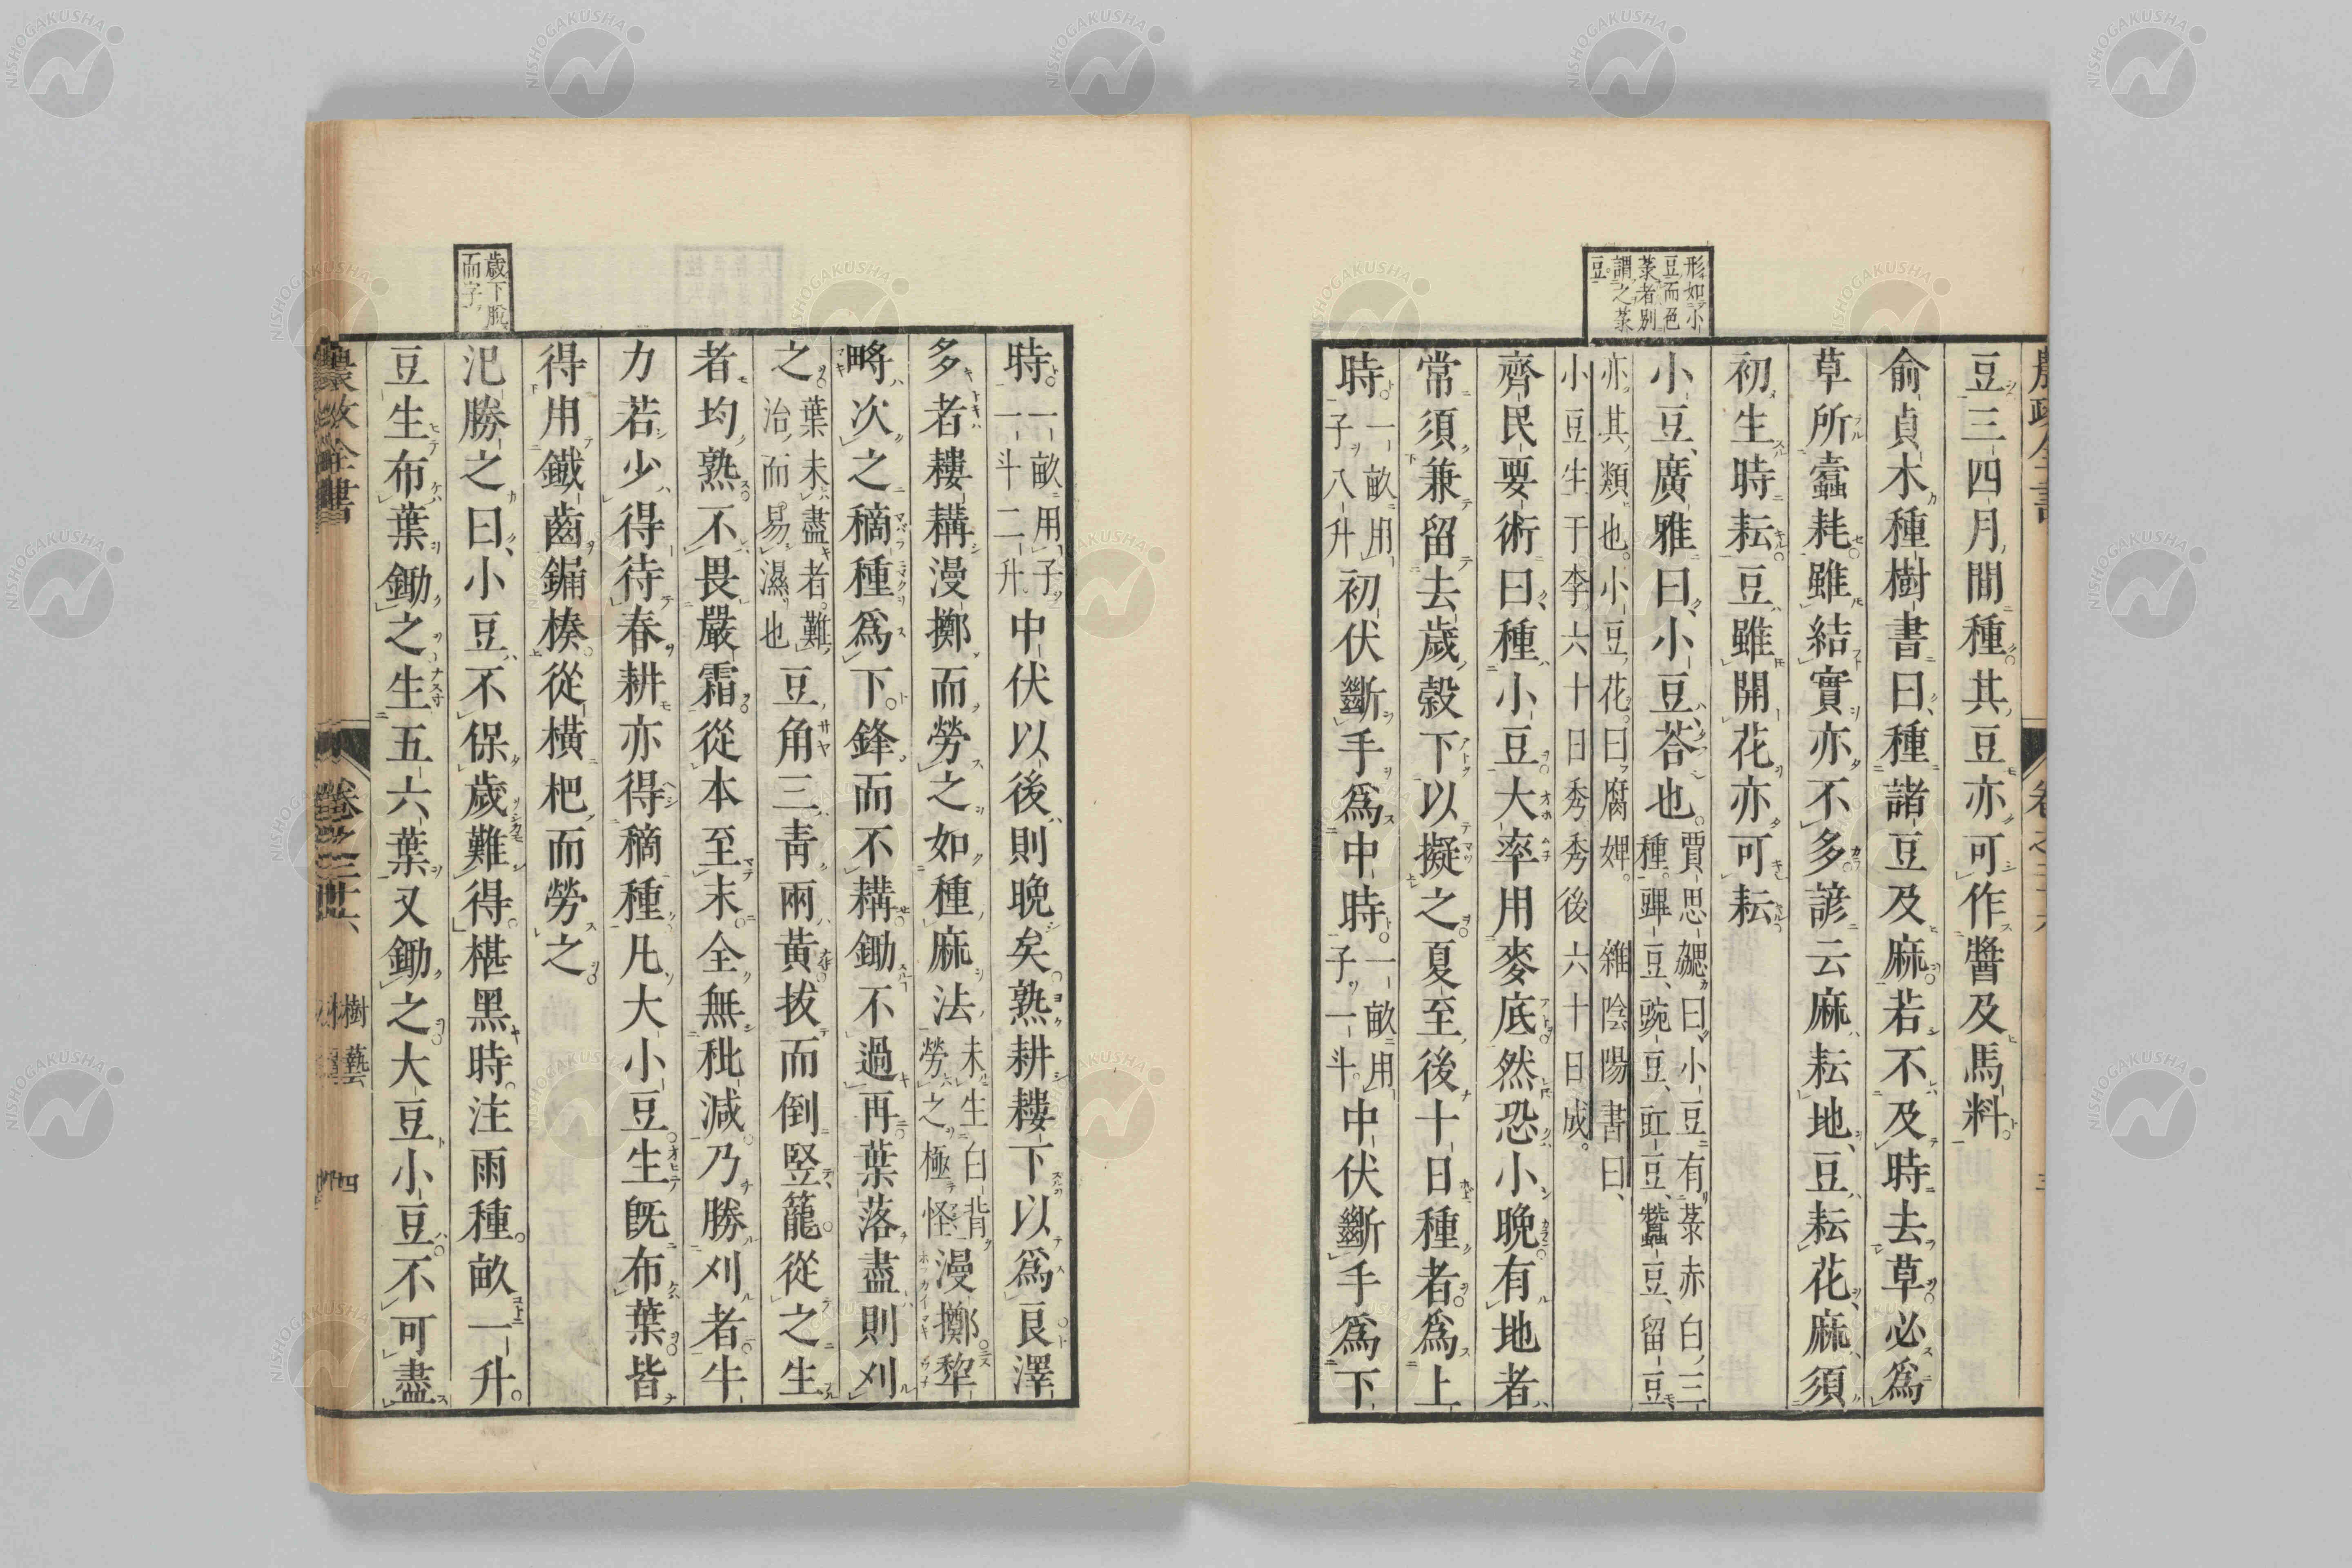 形如小
豆而色
菉者別
謂之菉
豆
豆三四月間種其豆亦可作醬及馬料
俞貞木種樹書曰種諸豆及麻若不及時去草必爲
草所蠹耗雖結實亦不多諺云麻耘地豆耘花麻須
初生時耘豆雖開花亦可耘
小豆廣雅曰小豆荅也賈思勰曰小豆有菉赤白三
種䜁豆豌豆豇豆䝁豆留豆
亦其類也小豆花曰腐婢 雜陰陽書曰
小豆生于李六十日秀秀後六十日成
齊民要術曰種小豆大率用麥底然恐小晚有地者
常須兼留去歲穀下以擬之夏至後十日種者爲上
時一畝用
子八升初伏斷手爲中時一畝用
子一斗中伏斷手爲下
時一畝用子
一斗二升中伏以後則晚矣熟耕耬下以爲良澤
多者耬耩漫擲而勞之如種麻法未生白背
勞之極怪漫擲犂
㽟次之稿種爲下鋒而不耩鋤不過再葉落盡則刈
之葉未盡者難
治而易濕也豆角三靑兩黃拔而倒竪籠從之生
者均熟不畏嚴霜從本至末全無秕減乃勝刈者牛
力若少得待春耕亦得稿種凡大小豆生旣布葉皆
得用鐵齒𨫒楱從橫杷而勞之
歲下脫
而字
氾勝之曰小豆不保歲難得椹黑時注雨種畝一升
豆生布葉鋤之生五六葉又鋤之大豆小豆不可盡
農政全書 卷之二十六 樹藝 四